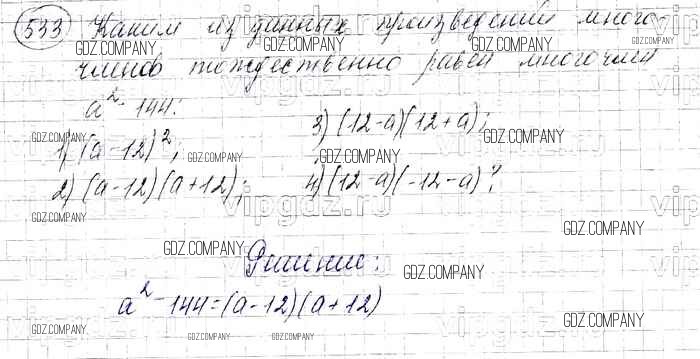 533 Каким из данных произведений много-
GDZ.COMPANY GDZ.COMPANY GDZ.COMPANY GDZ.COMPANY
членов тождественно равен многочлен
a² - 144:
vipgdz.ru
GDZ.COMPANY GDZ.COMPANY
1) (a-12)²; 3) (12-a)(12+a);
GDZ.COMPANY GDZ.COMPANY
2) (a-12)(a+12); 4) (12-a)(-12-a)?
vipgdz.ru
GDZ.COMPANY GDZ.COMPANY
GDZ.COMPANY
Решение:
GDZ.COMPANY
a² - 144 = (a-12)(a+12)
vipgdz.ru
GDZ.COMPANY GDZ.COMPANY GDZ.COMPANY GDZ.COMPANY